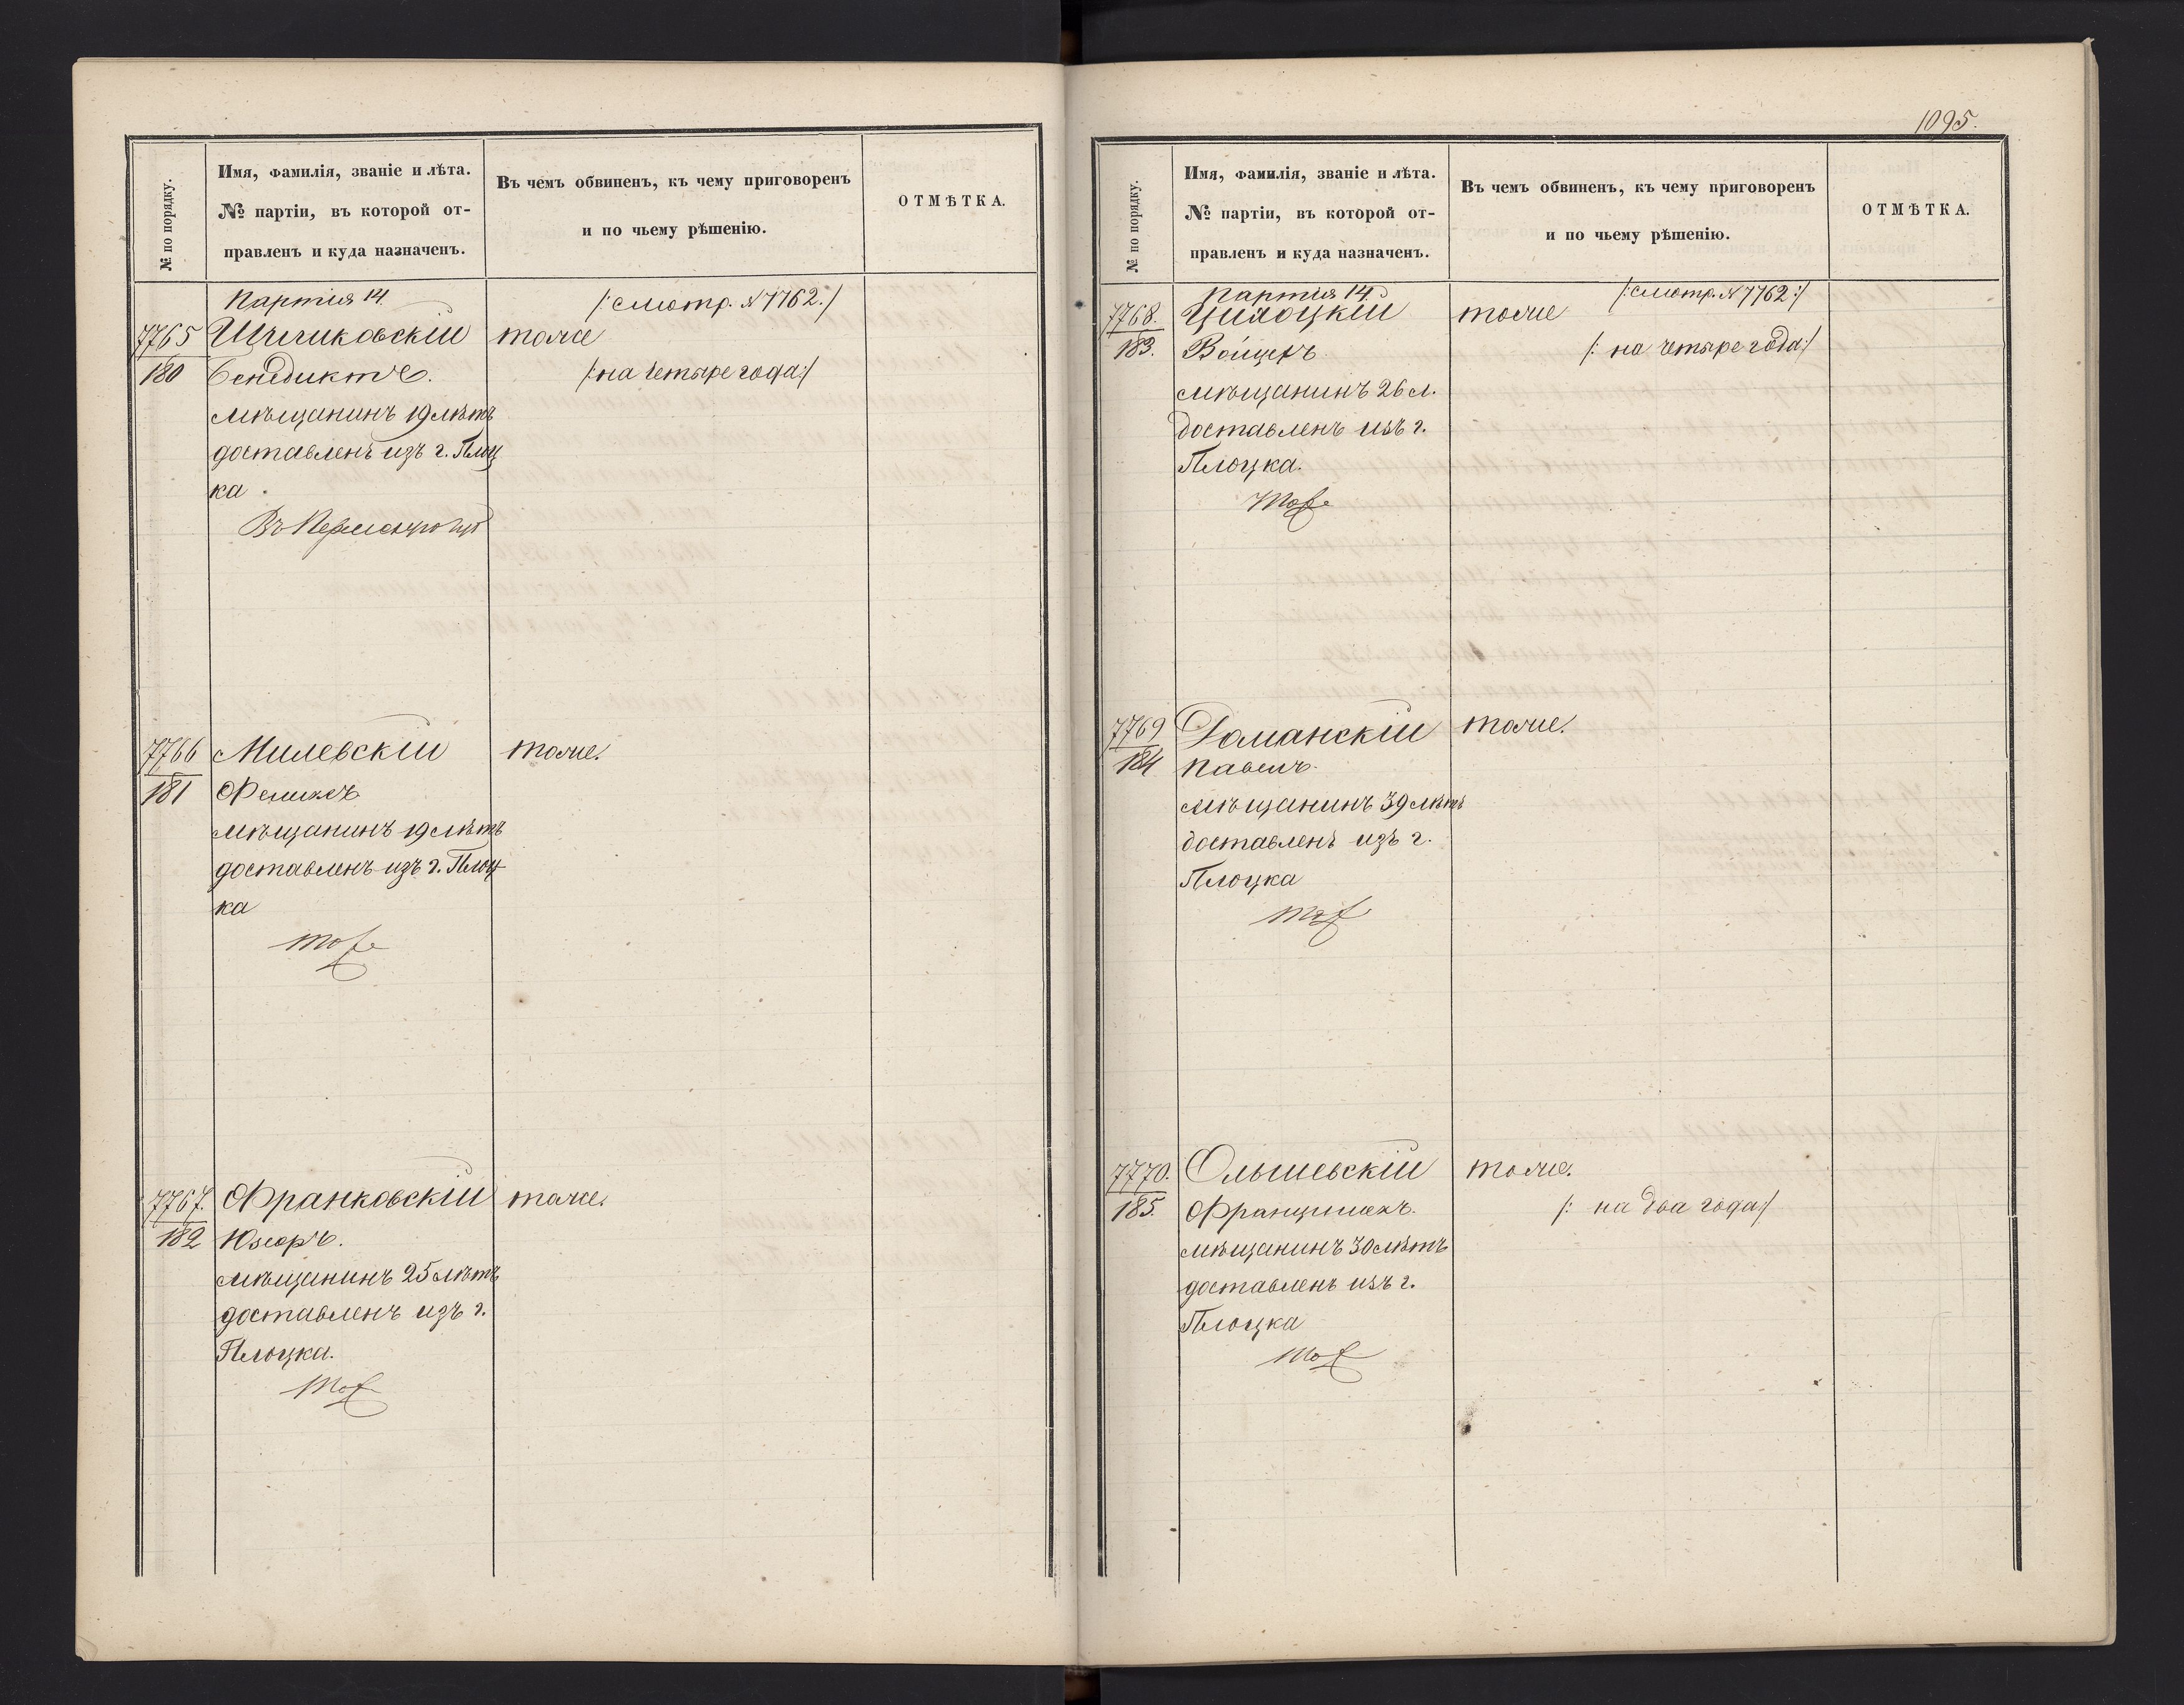 № по порядку.
Имя, фамилія, званіе и лѣта.
№ партіи, въ которой от-
правленъ и куда назначенъ.
Въ чемъ обвиненъ, къ чему приговоренъ
и по чьему рѣшенію.
ОТМѢТКА.
Партия 14.
/:смотр. № 7762.:/
7765
180
тоже
/:на четыре года:/
Бенедиктъ.
мѣщанинъ 19 лѣтъ
доставленъ изъ г. Плоц
ка
Въ
7766
181
Милевскій
тоже.
Феликсъ
мѣщанинъ 19 лѣтъ
доставленъ изъ г. Плоц
ка
тоже
7767.
182
Франковскій
тоже.
Юзефъ.
мѣщанинъ 25 лѣтъ
доставленъ изъ г.
Плоцка.
тоже
1095.
№ по порядку.
Имя, фамилія, званіе и лѣта.
№ партіи, въ которой от-
правленъ и куда назначенъ.
Въ чемъ обвиненъ, къ чему приговоренъ
и по чьему рѣшенію.
ОТМѢТКА.
Партия 14.
/:смотр. № 7762:/
7768.
183.
тоже
/: на четыре года:/
Войцехъ
мѣщанинъ 26 л.
доставленъ изъ г.
Плоцка.
тоже
7769
184
Доманскій
тоже.
Павелъ.
мѣщанинъ 39 лѣтъ
доставленъ изъ г.
Плоцка
тоже
7770.
185.
Ольшевскій
тоже.
/: на два года:/
Францишекъ.
мѣщанинъ 30 лѣтъ
доставленъ изъ г.
Плоцка
тоже